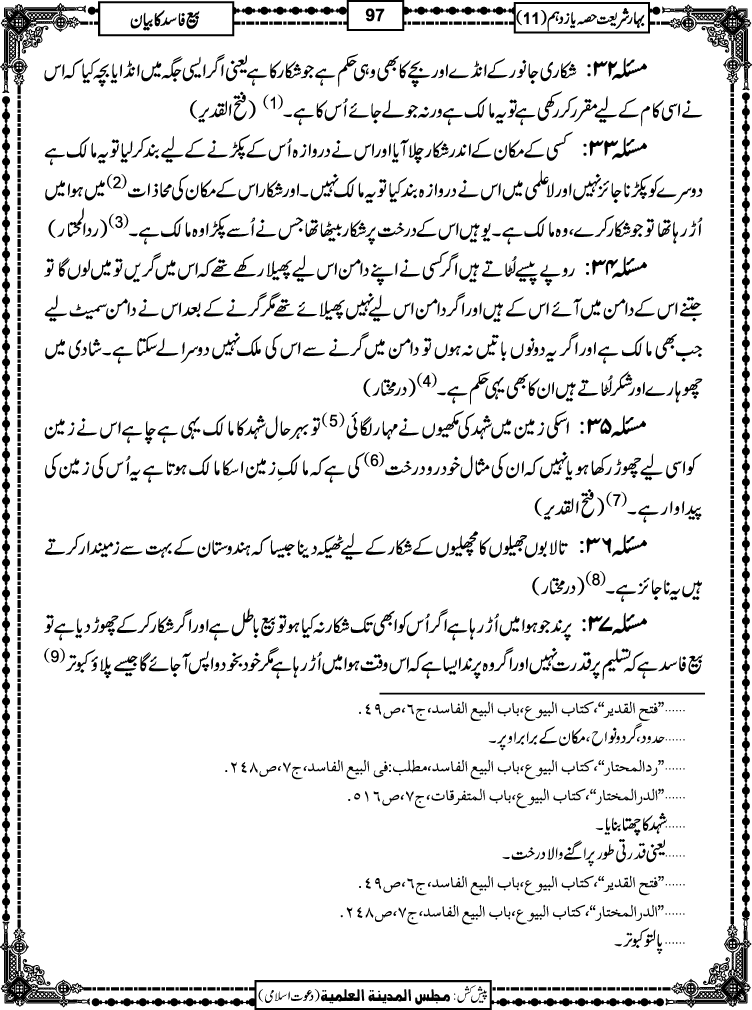 بہار شریعت حصہ یازدہم (11)
97
بیع فاسد کا بیان
مسئلہ ۳۲: شکاری جانور کے انڈے اور بچے کا بھی وہی حکم ہے جو شکار کا ہے یعنی اگر ایسی جگہ میں انڈا یا بچہ کیا کہ اس
نے اسی کام کے لیے مقرر کر رکھی ہے تو یہ مالک ہے ورنہ جو لے جائے اُس کا ہے۔(1) (فتح القدیر)
مسئلہ ۳۳: کسی کے مکان کے اندر شکار چلا آیا اور اس نے دروازہ اُس کے پکڑنے کے لیے بند کر لیا تو یہ مالک ہے
دوسرے کو پکڑنا جائز نہیں اور لاعلمی میں اس نے دروازہ بند کیا تو یہ مالک نہیں۔ اور شکار اس کے مکان کی محاذات(2) میں ہوا میں
اُڑ رہا تھا تو جو شکار کرے، وہ مالک ہے۔ یوہیں اس کے درخت پر شکار بیٹھا تھا جس نے اُسے پکڑا وہ مالک ہے۔(3) (ردالمحتار)
مسئلہ ۳۴: روپے پیسے لُٹاتے ہیں اگر کسی نے اپنے دامن اس لیے پھیلا رکھے تھے کہ اس میں گریں تو میں لوں گا تو
جتنے اس کے دامن میں آئے اس کے ہیں اور اگر دامن اس لیے نہیں پھیلائے تھے مگر گرنے کے بعد اس نے دامن سمیٹ لیے
جب بھی مالک ہے اور اگر یہ دونوں باتیں نہ ہوں تو دامن میں گرنے سے اس کی ملک نہیں دوسرا لے سکتا ہے۔ شادی میں
چھوہارے اور شکر لُٹاتے ہیں ان کا بھی یہی حکم ہے۔(4) (درمختار)
مسئلہ ۳۵: اسکی زمین میں شہد کی مکھیوں نے مہار لگائی(5) تو بہر حال شہد کا مالک یہی ہے چاہے اس نے زمین
کو اسی لیے چھوڑ رکھا ہو یا نہیں کہ ان کی مثال خودرو درخت(6) کی ہے کہ مالکِ زمین اسکا مالک ہوتا ہے یہ اُس کی زمین کی
پیداوار ہے۔(7) (فتح القدیر)
مسئلہ ۳۶: تالابوں جھیلوں کا مچھلیوں کے شکار کے لیے ٹھیکہ دینا جیسا کہ ہندوستان کے بہت سے زمیندار کرتے
ہیں یہ ناجائز ہے۔(8) (درمختار)
مسئلہ ۳۷: پرند جو ہوا میں اُڑ رہا ہے اگر اُس کو ابھی تک شکار نہ کیا ہو تو بیع باطل ہے اور اگر شکار کر کے چھوڑ دیا ہے تو
بیع فاسد ہے کہ تسلیم پر قدرت نہیں اور اگر وہ پرند ایسا ہے کہ اس وقت ہوا میں اُڑ رہا ہے مگر خود بخود واپس آجائے گا جیسے پلاؤ کبوتر(9)
......”فتح القدير“،كتاب البيوع،باب البيع الفاسد،ج٦،ص٤٩.
......حدود، گردونواح، مکان کے برابر اوپر۔
......”ردالمحتار“،كتاب البيوع،باب البيع الفاسد،مطلب:فى البيع الفاسد،ج٧،ص٢٤٨.
......”الدرالمختار“،كتاب البيوع،باب المتفرقات،ج٧،ص٥١٦.
......شہد کا چھتا بنایا۔
......یعنی قدرتی طور پر اگنے والا درخت۔
......”فتح القدير“،كتاب البيوع،باب البيع الفاسد،ج٦،ص٤٩.
......”الدرالمختار“،كتاب البيوع،باب البيع الفاسد،ج٧،ص٢٤٨.
......پالتو کبوتر۔
پیش کش: مجلس المدينة العلمية (دعوت اسلامی)